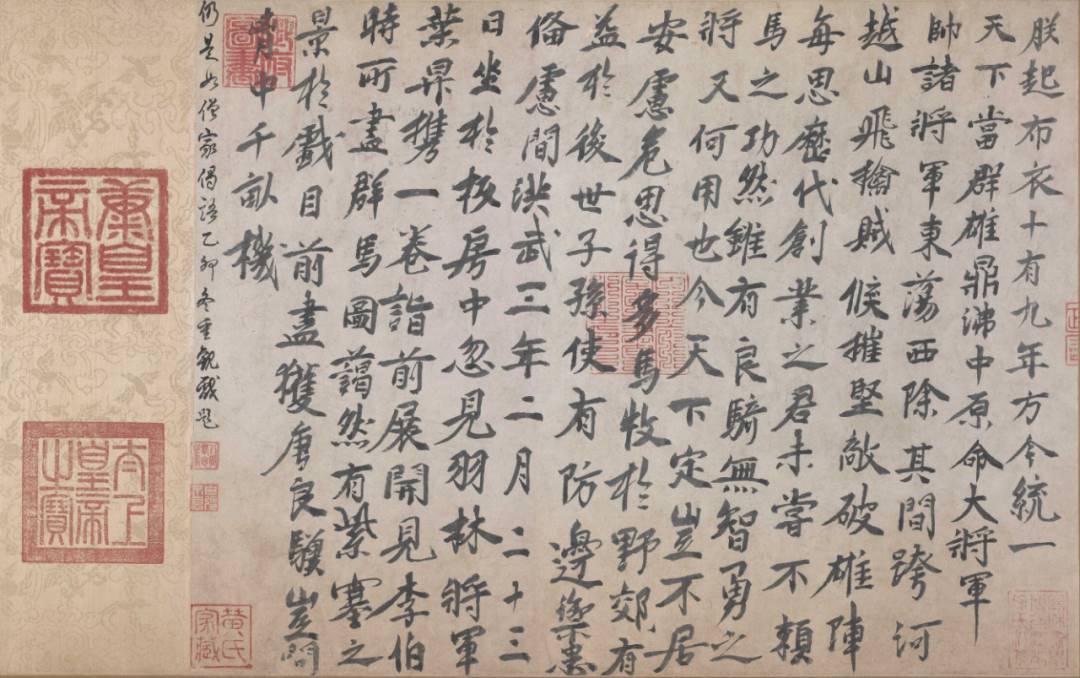 朕起布衣十有九年方今統一
天下當群雄鼎沸中原命大將軍
帥諸將軍東蕩西除其間跨河
越山飛擒賊候摧堅敵破雄陣
每思歷代創業之君未嘗不賴
馬之功然雖有良騎無智勇之
將又何用也今天下定豈不居
安慮危思得多馬牧於野郊有
益於後世子孫使有防邊禦患
俻慮間洪武三年二月二十三
日坐於板房中忽見羽林將軍
葉昇携一卷詣前展開見李伯
時所畫群馬圖藹然有紫塞之
景於戲目前盡獲唐良驥豈問
胷中千畝機
仍是如僧家偈語乙卯冬重觀戲題
太上皇帝之寶
黃氏家藏